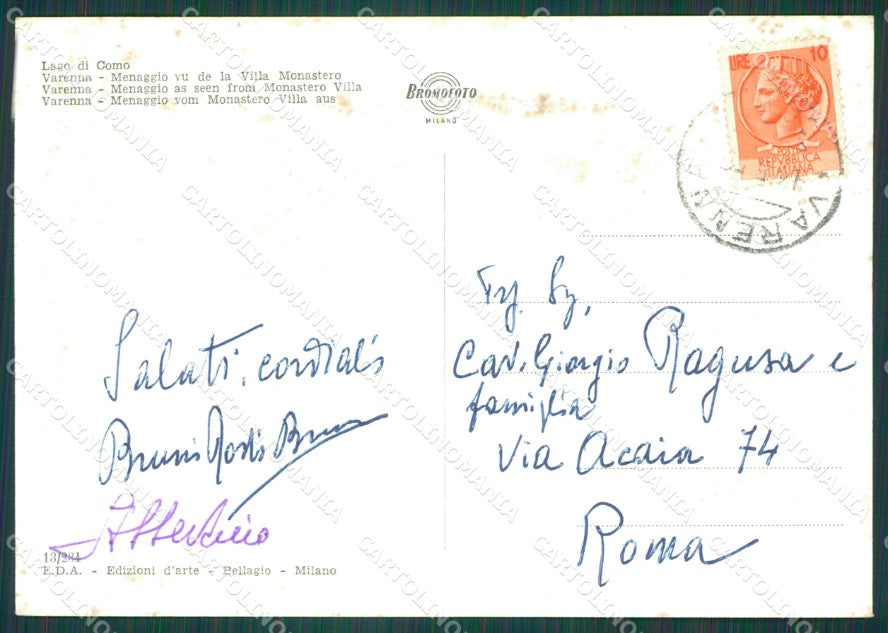 Lago di Como
Varenna - Menaggio vu de la Villa Monastero
Varenna - Menaggio as seen from Monastero Villa
Varenna - Menaggio vom Monastero Villa aus
BROMOFOTO
MILANO
LIRE 10
POSTE
REPVBBLICA
ITALIANA
VARENNA
Saluti cordialis
Bruni
Albertino
Cav. Giorgio Ragusa e
famiglia
Via Acaia 74
Roma
13/234
E.D.A. - Edizioni d'arte - Bellagio - Milano
CARTOLINOMANIA